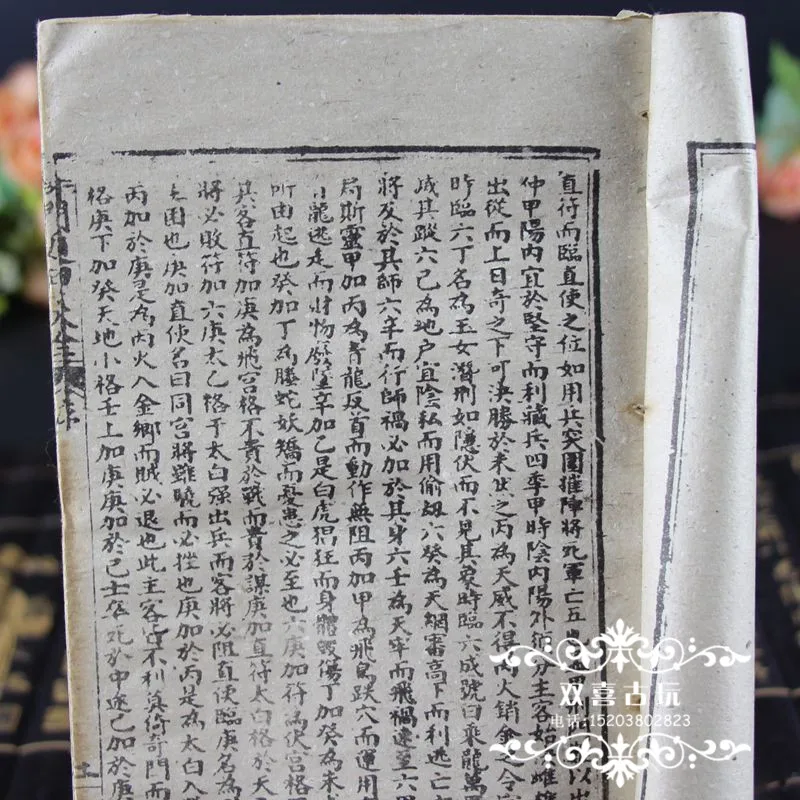 直符而臨直使之位如用兵突圍摧陣將死軍亡五
仲甲陽內宜於堅守而利藏兵四季甲時陰內陽外須分主客如
出從而上日奇之下可決勝於未伏之丙為天威不得丙火銷金之令
昨臨六丁名為玉女潛刑如隱伏而不見其衰時臨六戊號曰乘龍萬
滅其蹤六己為地户宜陰私而用偷劫六癸為天網審高下而利逃亡
將反於其師六辛而行師禍必加於其身六壬為天牢而飛禍速至六甲
局斯靈甲加丙為青龍反首而動作無阻丙加甲為飛鳥跌穴而運用
龍逃走而財物廢墜辛加乙是白虎猖狂而身體毀傷丁加癸為朱
所由起也癸加丁為騰蛇妖矯而憂患之必至也六庚加符為伏宮格
其客直符加庚為飛宮格不貴於戰而貴於謀庚加直符太白格於天
將必敗符加六庚太乙格于太白强出兵而客將必阻直使臨庚名為
困也庚加直使名曰同宮將雖驍而必挫也庚加於丙是為太白入
丙加於庚是為丙火入金鄉而賊必退也此主客占不利莫倚奇門而
格庚下加癸天地小格壬上加庚庚加於己士卒死於中途己加於庚
双喜古玩
电话:15203802823